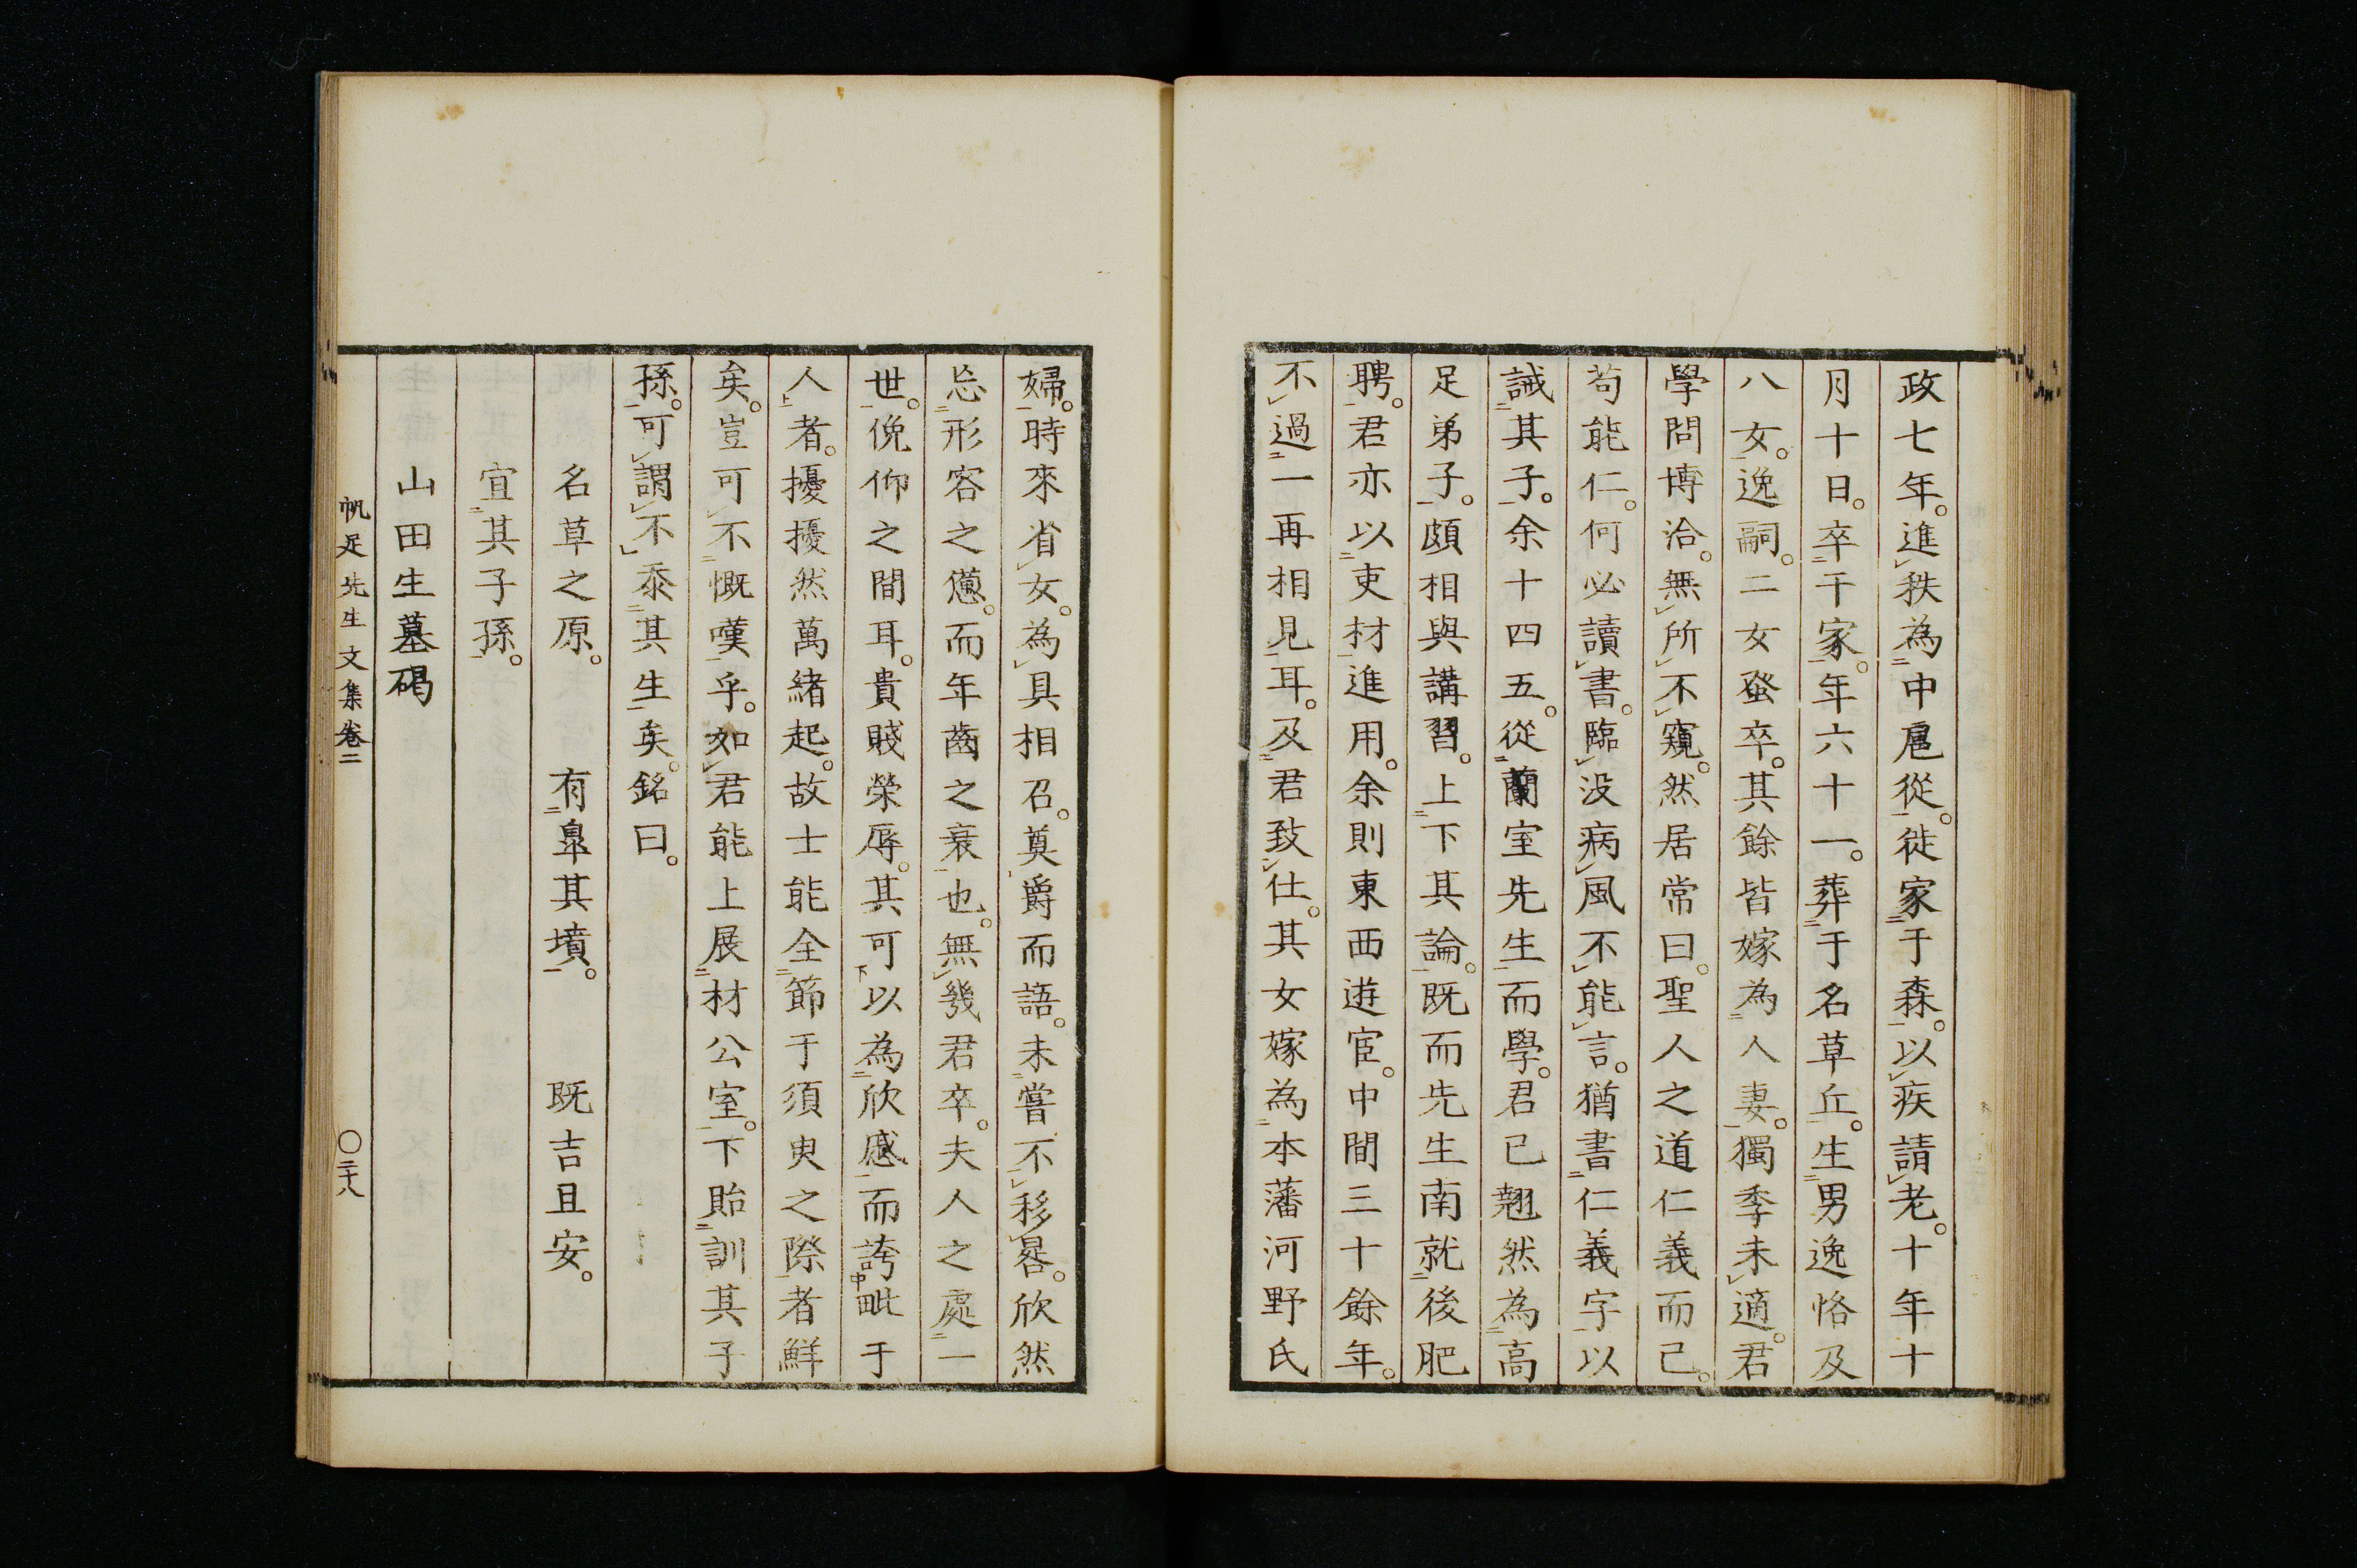 政七年。進秩為中扈從。徙家于森。以疾請老。十年十
月十日。卒于家。年六十一。葬于名草丘。生男逸恪及
八女。逸嗣。二女蚤卒。其餘皆嫁為人妻。獨季未適。君
學問博洽。無所不窺。然居常曰。聖人之道仁義而已。
苟能仁。何必讀書。臨没病風不能言。猶書仁義字以
誡其子。余十四五。從蘭室先生而學。君已翹然為高
足弟子。頗相與講習。上下其論。既而先生南就後肥
聘。君亦以吏材進用。余則東西遊宦。中間三十餘年。
不過一再相見耳。及君致仕。其女嫁為本藩河野氏
婦。時來省女。為具相召。奠爵而語。未嘗不移晷。欣然
忘形容之憊。而年齒之衰也。無幾君卒。夫人之處一
世。俛仰之間耳。貴賤榮辱。其可以為欣慼而誇毗于
人者。擾擾然萬緒起。故士能全節于須臾之際者鮮
矣。豈可不慨嘆乎。如君能上展材公室。下貽訓其子
孫。可謂不忝其生矣。銘曰。
名草之原。有睪其墳。既吉且安。
宜其子孫。
山田生墓碣
帆足先生文集卷二 〇二十八